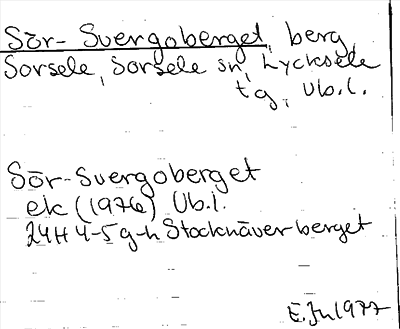 Sör-Svergoberget, berg
Sorsele, Sorsele sn, Lycksele
tg, Vb.l.
Sör-Svergoberget
ek (1976) Vb.l.
24H 4-5 g-h Stocknäverberget
1977